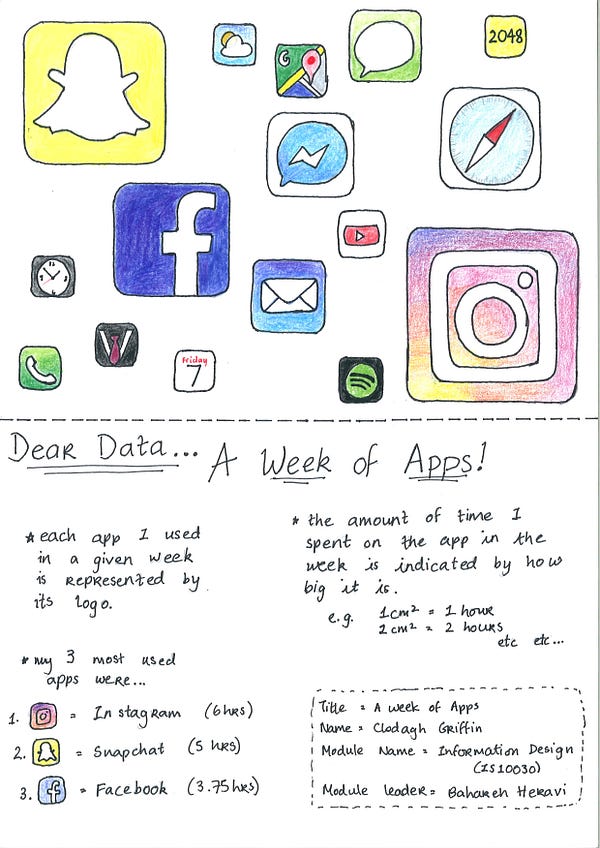 2048
G
f
W
Friday
7
Dear Data... A Week of Apps!
* each app I used
in a given week
is represented by
its logo.
* the amount of time I
spent on the app in the
week is indicated by how
big it is.
e.g. 1cm² = 1 hour
2cm² = 2 hours
etc etc...
* my 3 most used
apps were...
1. = Instagram (6hrs)
2. = Snapchat (5 hrs)
3. f = Facebook (3.75hrs)
Title = A week of Apps
Name = Clodagh Griffin
Module Name = Information Design
(IS10030)
Module leader = Bahareh Heravi